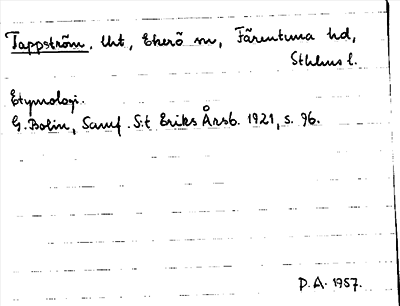 Tappström, Uht, Ekerö sn, Färentuna hd,
Sthlms l.
Etymologi.
G. Bolin, Samf. S:t Eriks Årsb. 1921, s. 96.
P.A. 1957.